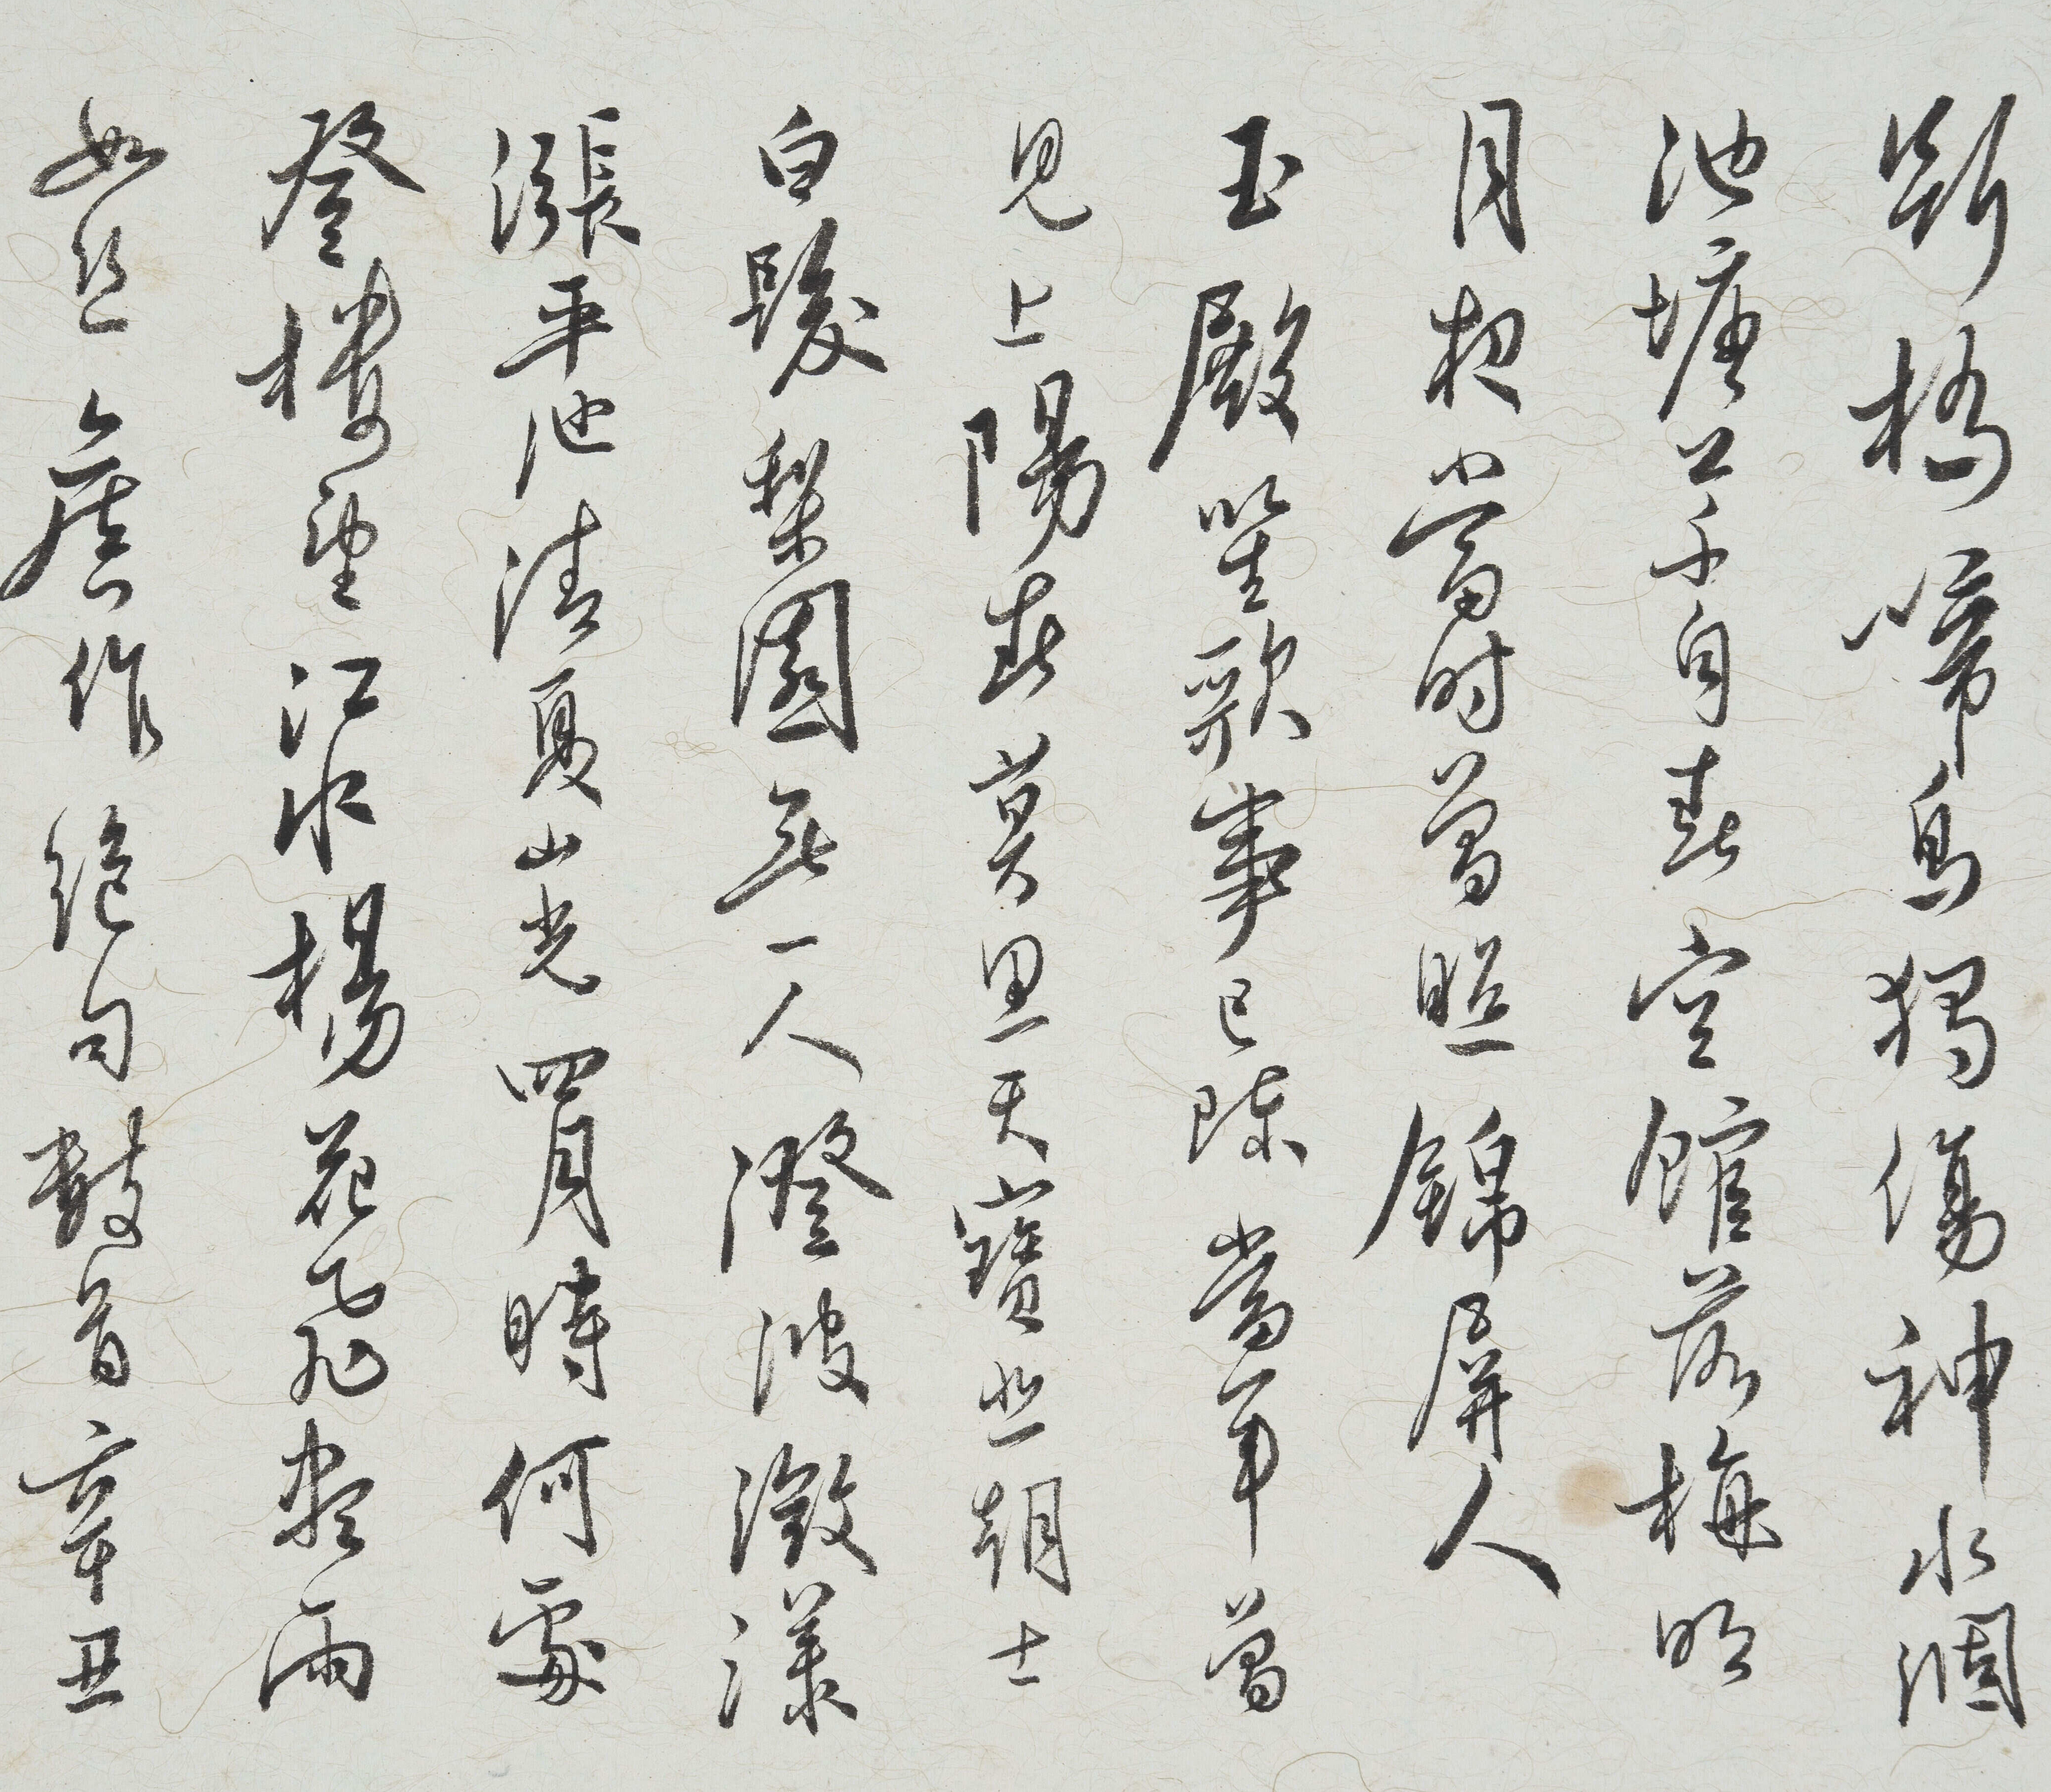 斷橋啼鳥獨傷神水涸
池塘草自春空館落梅明
月夜當時曾照錦屏人
玉殿笙歌事已陳當年曾
見上陽春莫思天寶些朝士
白髮梨園無一人澄波微漾
漲平池清夏山光四月時何處
登樓望江水楊花飛盡雨
如絲舊作絕句數首辛丑